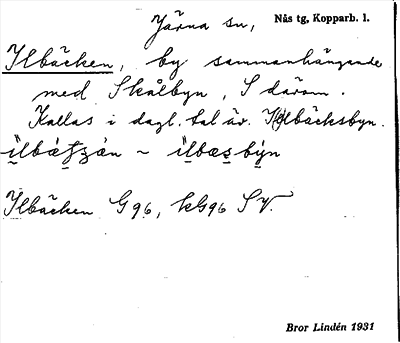 Järna sn, Nås tg, Kopparb. l.
Ilbäcken, by sammanhängande
med Skålbyn, S därom.
Kallas i dagl. tal äv. Ilbäcksbyn.
~
Ilbäcken G96, kG96 SV.
Bror Lindén 1931